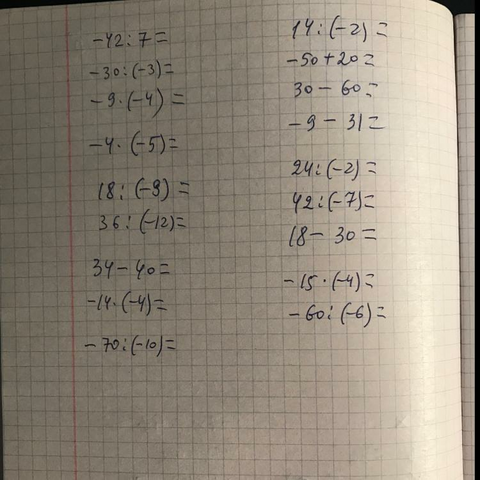 -42:7=
-30:(-3)=
-9·(-4)=
-4·(-5)=
18:(-9)=
36:(-12)=
34-40=
-14·(-4)=
-70:(-10)=
14:(-2)=
-50+20=
30-60=
-9-31=
24:(-2)=
42:(-7)=
18-30=
-15·(-4)=
-60:(-6)=